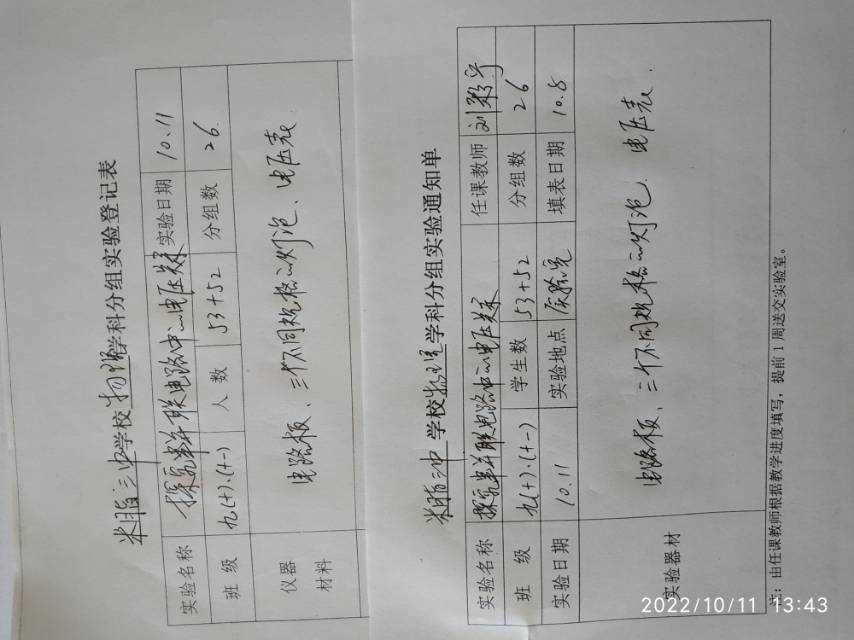 米脂三中学校物理学科分组实验登记表
实验名称 探究串并联电路中的电压关系 实验日期 10.11
班 级 九(十).(十一) 人 数 53+52 分组数 26
仪器
材料
电路板、三个不同规格的灯泡、电压表
米脂三中学校物理学科分组实验通知单
实验名称 探究串并联电路中的电压关系 任课教师 刘
班 级 九(十).(十一) 学生数 53+52 分组数 26
实验日期 10.11 实验地点 实验室 填表日期 10.8
实验器材 电路板、三个不同规格的灯泡、电压表.
注：由任课教师根据教学进度填写，提前1周送交实验室。
2022/10/11 13:43